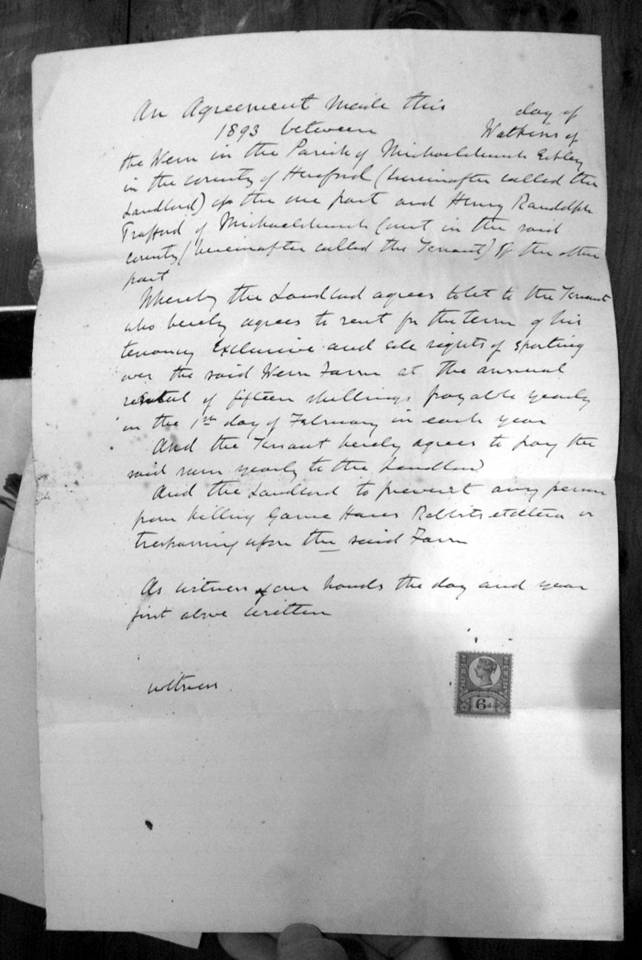 An Agreement made this day of
1893 between Watkins of
the Wern in the Parish of Michaelchurch Eskley
in the county of Hereford (hereinafter called the
Landlord) of the one part and Henry Randolph
Trafford of Michaelchurch Court in the said
county (hereinafter called the Tenant) of the other
part
Whereby the Landlord agrees to let to the Tenant
who hereby agrees to rent for the term of his
tenancy exclusive and sole rights of sporting
over the said Wern Farm at the annual
rental of fifteen shillings payable yearly
on the 1st day of February in each year
And the Tenant hereby agrees to pay the
said sum yearly to the Landlord
And the Landlord to prevent any person
from killing Game Hares Rabbits etcetera or
trespassing upon the said Farm
As witness our hands the day and year
first above written
witness
6d